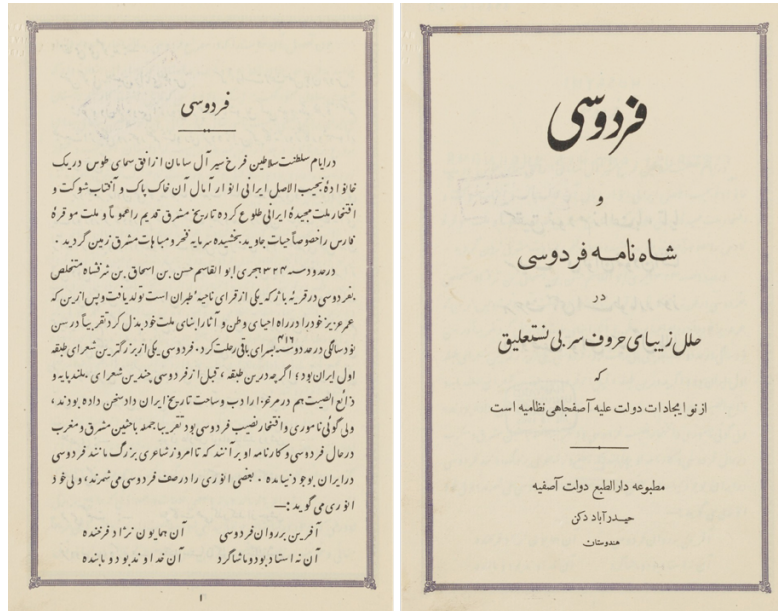 فردوسی
و
شاه نامه فردوسی
در
حلل زیبای حروف سربی نستعلیق
که
از نو ایجادات دولت علیه آصفجاهی نظامیه است
مطبوعه دارالطبع دولت آصفیه
حیدرآباد دکن
هندوستان
فردوسی
در ایام سلطنت سلاطین فرخ سیر آل سامان از افق سمای طوس در یک
خانوادهٔ نجیب الاصل ایرانی انوار آمال آن خاک پاک و آفتاب شوکت و
افتخار ملت مجیدهٔ ایرانی طلوع کرده تاریخ مشرق قدیم را عموماً و ملت موقرهٔ
فارس را خصوصاً حیات جاوید بخشیده سرمایه فخر و مباهات مشرق زمین گردید ۰
در حدود سـ ۳۲۴ هجری ابو القاسم حسن بن اسحاق بن شرفشاه متخلص
بفردوسی در قریهٔ باژ که یکی از قرای ناحیهٔ طبران است تولد یافت و پس از ین که
عمر عزیز خود را در راه احیای وطن و آثار ابنای ملت خود بذل کرد تقریباً در سن
نود سالگی در حدود سـ ۴۱۶ بسرای باقی رحلت کرد ۰ فردوسی یکی از بزرگترین شعرای طبقه
اول ایران بود؛ اگرچه درین طبقه ، قبل از فردوسی چندین شعرای بلند پایه و
ذائع الصیت هم در مرغزار ادب و ساحت تاریخ ایران داد سخن داده بودند ،
ولی گوئی ناموری و افتخار نصیب فردوسی بود تقریبا جمله باحثین مشرق و مغرب
در حال فردوسی و کارنامه او بر آنند که تا امروز شاعری بزرگ مانند فردوسی
در ایران بوجود نیامده ۰ بعضی انوری را در صف فردوسی می شمرند ، ولی خود
انوری می گوید :—
آفرین بر روان فردوسی آن همایون نژاد فرخنده
آن نه استاد بود و ما شاگرد آن خداوند بود و ما بنده
۱